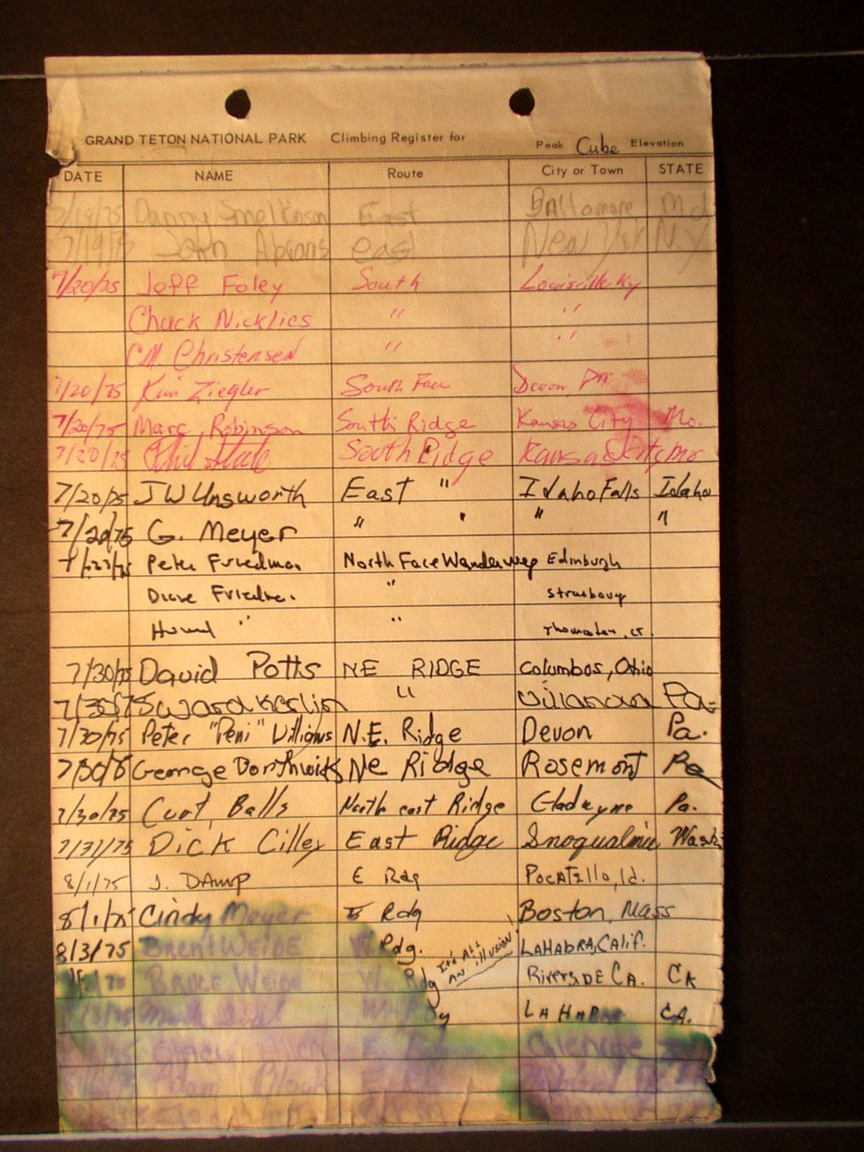 GRAND TETON NATIONAL PARK Climbing Register for Peak Cube Elevation
DATE NAME Route City or Town STATE
7/19/75 Danny Smelkinson East Baltamore Md
7/19/75 John Abrons east New York N.Y
7/20/75 Jeff Foley South Louisville Ky
Chuck Nicklies " "
CM Christensen "
7/20/75 Kim Ziegler South Face Devon, Pa
7/20/75 Marc Robinson South Ridge Kansas City Mo.
7/20/75 Phil South Ridge Kansas City Mo
7/20/75 JW Unsworth East " Idaho Falls Idaho
7/20/75 G. Meyer " " " "
Peter Friedman North Face Wanderweg Edinburgh
Diane "
" "
7/30/75 David Potts NE RIDGE Columbos, Ohio
" Pa.
7/30/75 Peter "Peni" Williams N.E. Ridge Devon Pa.
George Borthwick Ne Ridge Rosemont Pa
7/30/75 Curt, Balls North east Ridge Gladwyne Pa.
7/31/75 Dick Cilley East Ridge Snoqualmie Wash
8/1/75 J. DAMP E Rdg POCATELLO, Id.
8/1/75 Cindy Meyer E Rdg Boston, Mass
8/3/75 Brent WEIDE W. Rdg. LAHABRA, Calif.
IT'S ALL
AN illusion!
Bruce Weide W. Rdg RIVERSIDE CA. CA
LA HABRA CA.